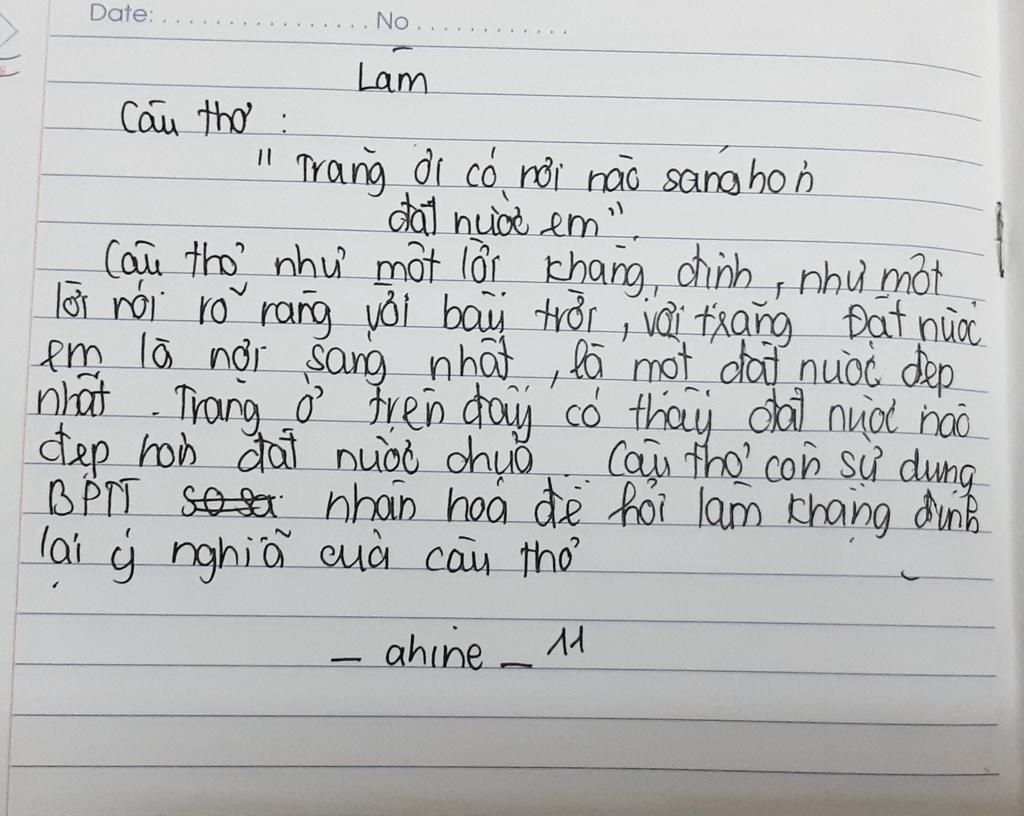 Date: ................. No ............
Làm
Câu thơ :
" Trăng ơi có nơi nào sáng hơn
đất nước em".
Câu thơ như một lời khẳng định, như một
lời nói rõ ràng với bầu trời, với trăng Đất nước
em là nơi sáng nhất, là một đất nước đẹp
nhất. Trăng ở trên đấy có thấy đất nước nào
đẹp hơn đất nước chưa. Câu thơ còn sử dụng
BPTT nhân hoá để hỏi làm khẳng định
lại ý nghĩa của câu thơ
- ahine - 11